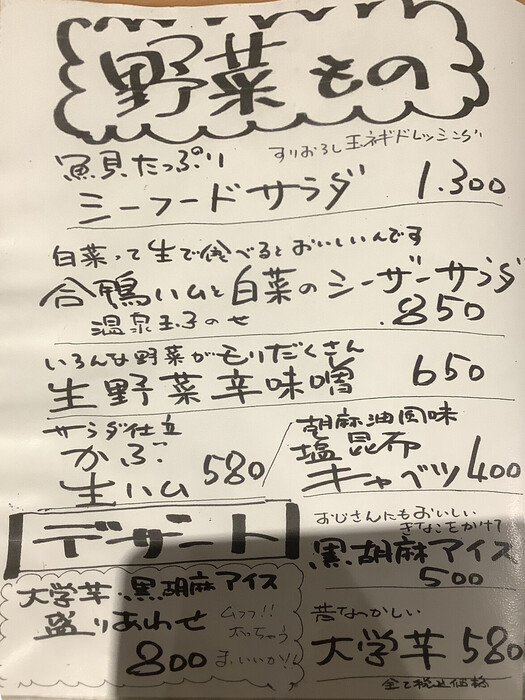 野菜もの
すりおろし玉ネギドレッシング
魚貝たっぷり
シーフードサラダ 1.300
白菜って生で食べるとおいしいんです
合鴨ハムと白菜のシーザーサラダ
温泉玉子のせ 850
いろんな野菜がもりだくさん
生野菜辛味噌 650
サラダ仕立
かぶ
生ハム 580
胡麻油風味
塩昆布
キャベツ 400
デザート
おじさんにもおいしい
きなこをかけて
黒胡麻アイス
500
大学芋、黒胡麻アイス
盛りあわせ
ムフフ!!
太っちゃう
800 まぁいいか!!
昔なつかしい
大学芋 580
全て税込価格